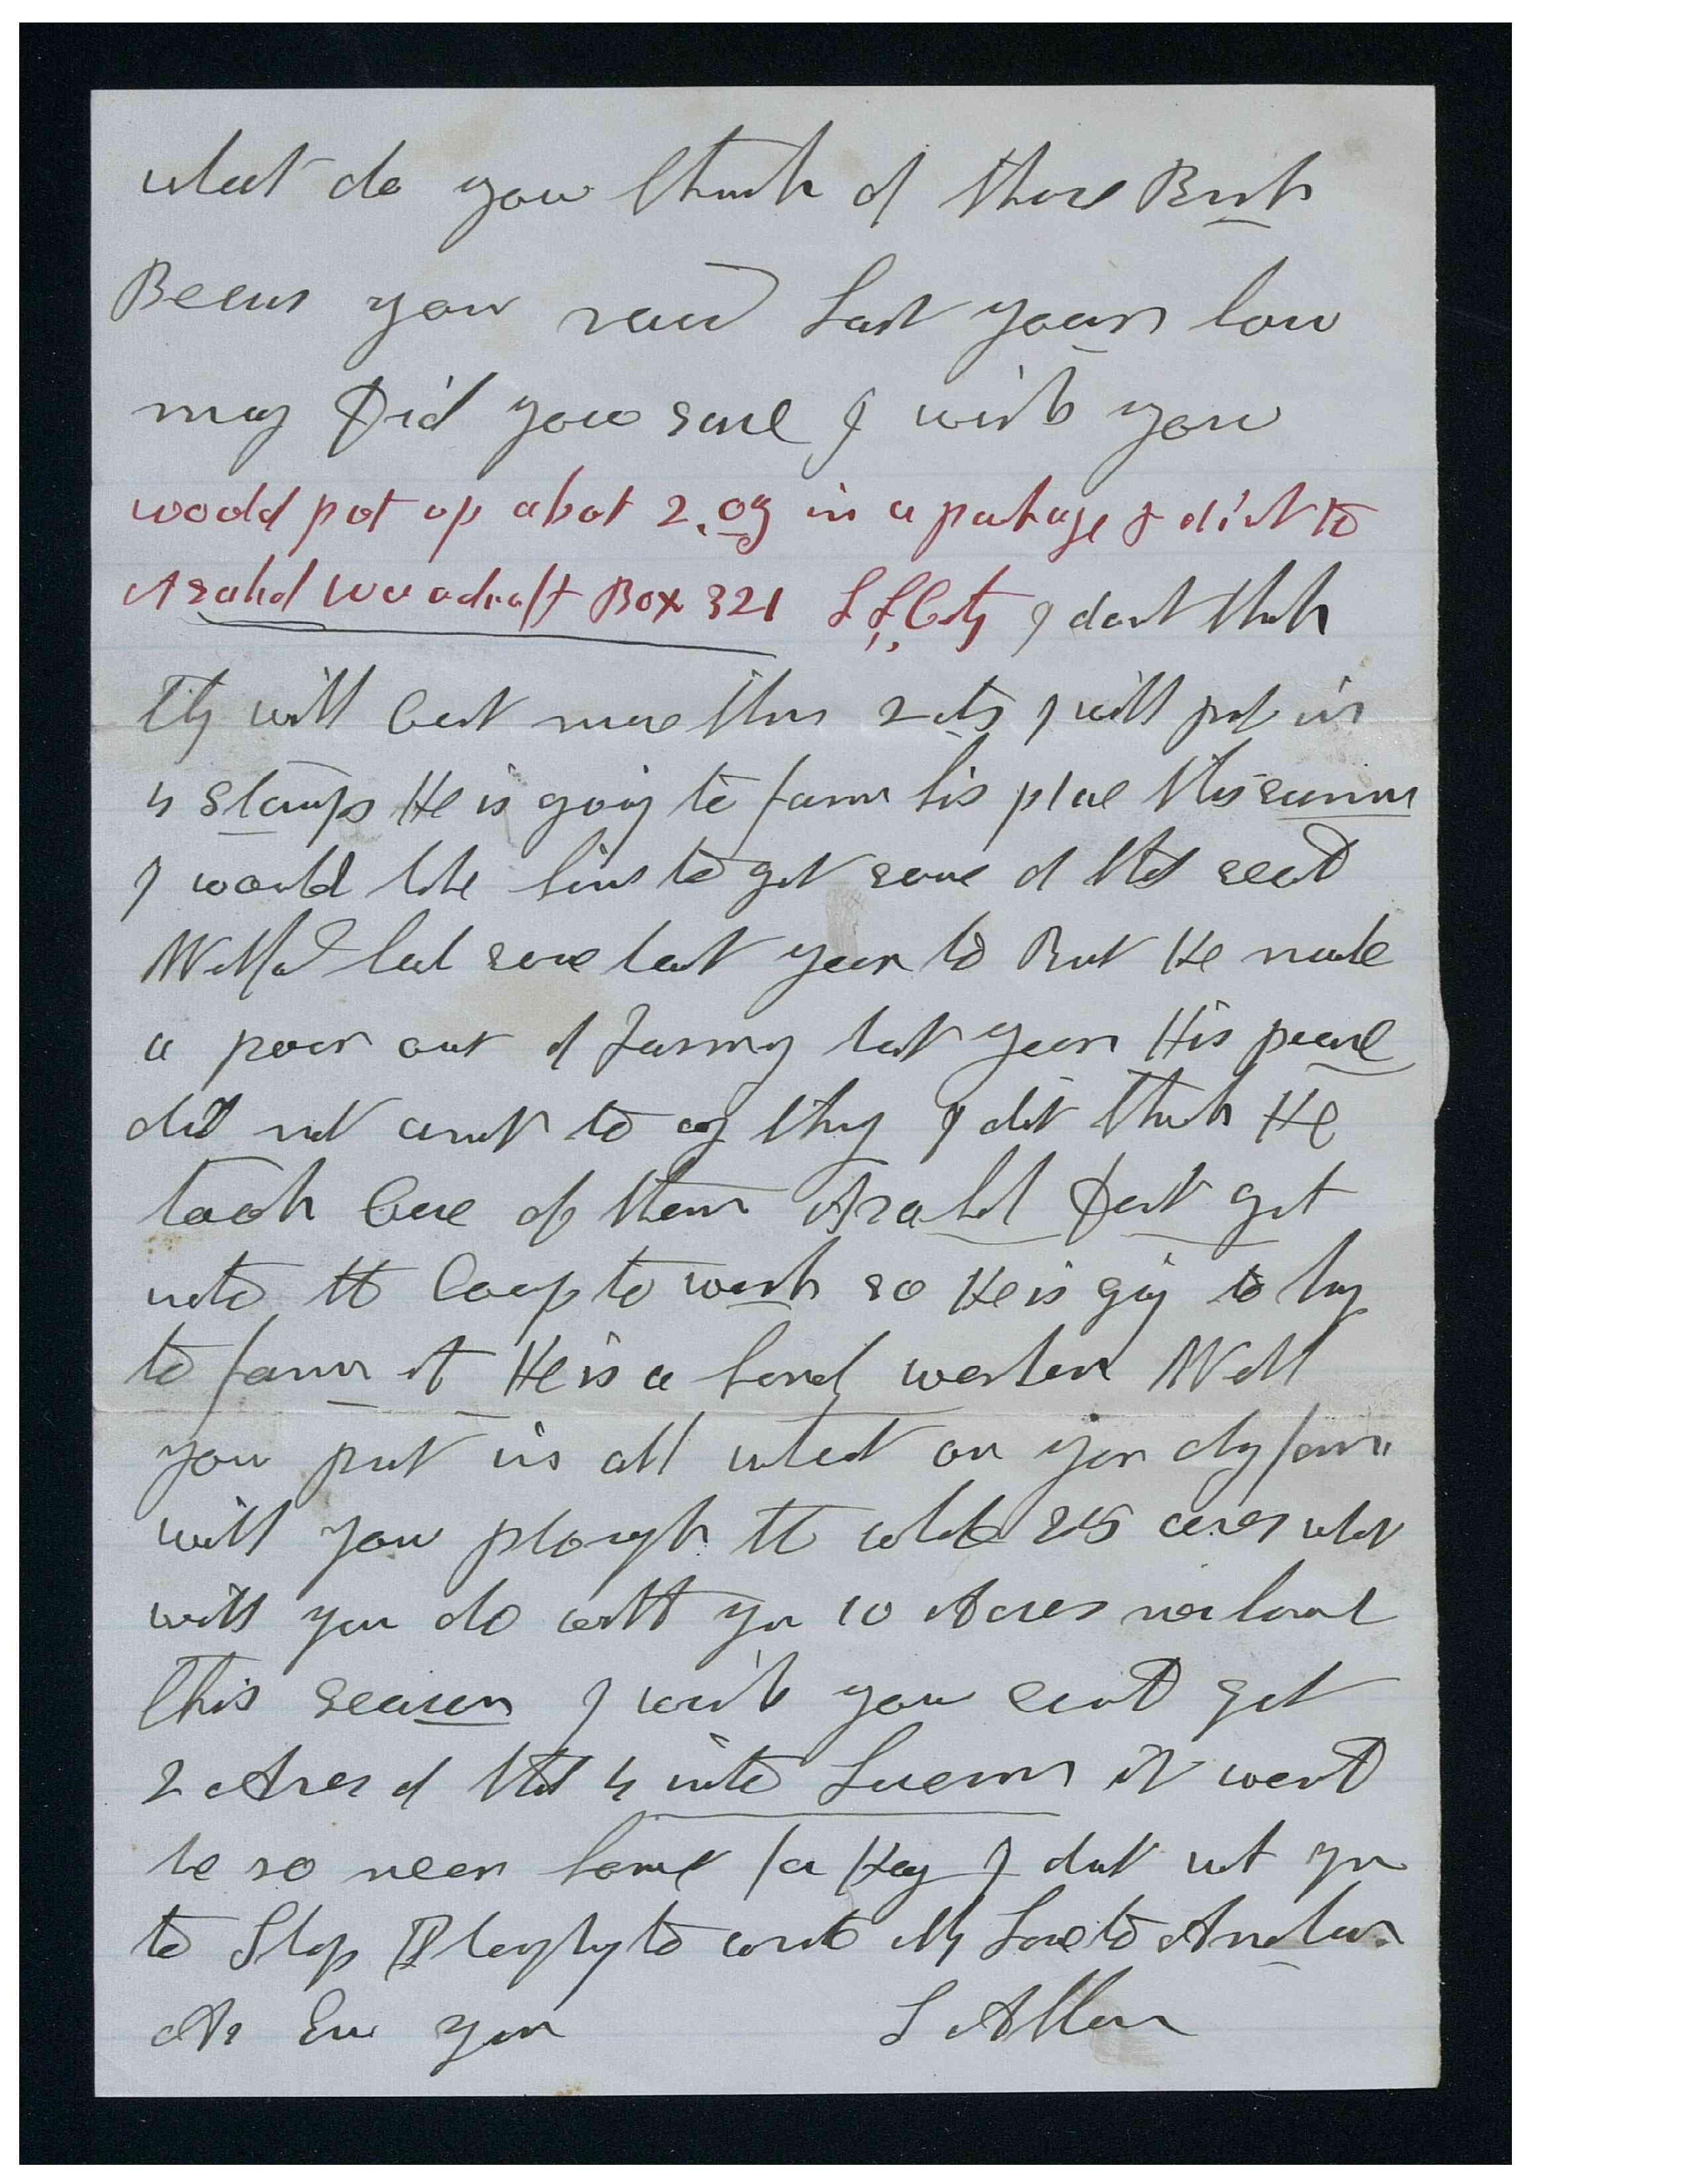 what do you think of those Bush
Beens you raised Last year how
many Did you save I wish you
woold pot op abot 2.oz in a package & dirct to
Asahel Woodruff Box 321 S.L.City I dont think
They will Cost more than 2 cts I will put in
4 Stamps He is going to farm his place this summer
I would like him to get some of that seed
Wilford had some last year to But He made
a poor out of Farming last year His peas
did not amount to any thing I dont think He
took Care of them Asahel Dont get
into the Coop to work so He is going to try
to farm it He is a hard worker Will
you put in all wheat on your dry farm
will you plough the whole 25 acres what
will you do with your 10 Acres near home
This season I wish you could get
2 Acres of that 4 into Lucern it would
be so near home for Hay I dont want you
to Stop Ploughing to write My Love to Andrew
As Ever your L Allen